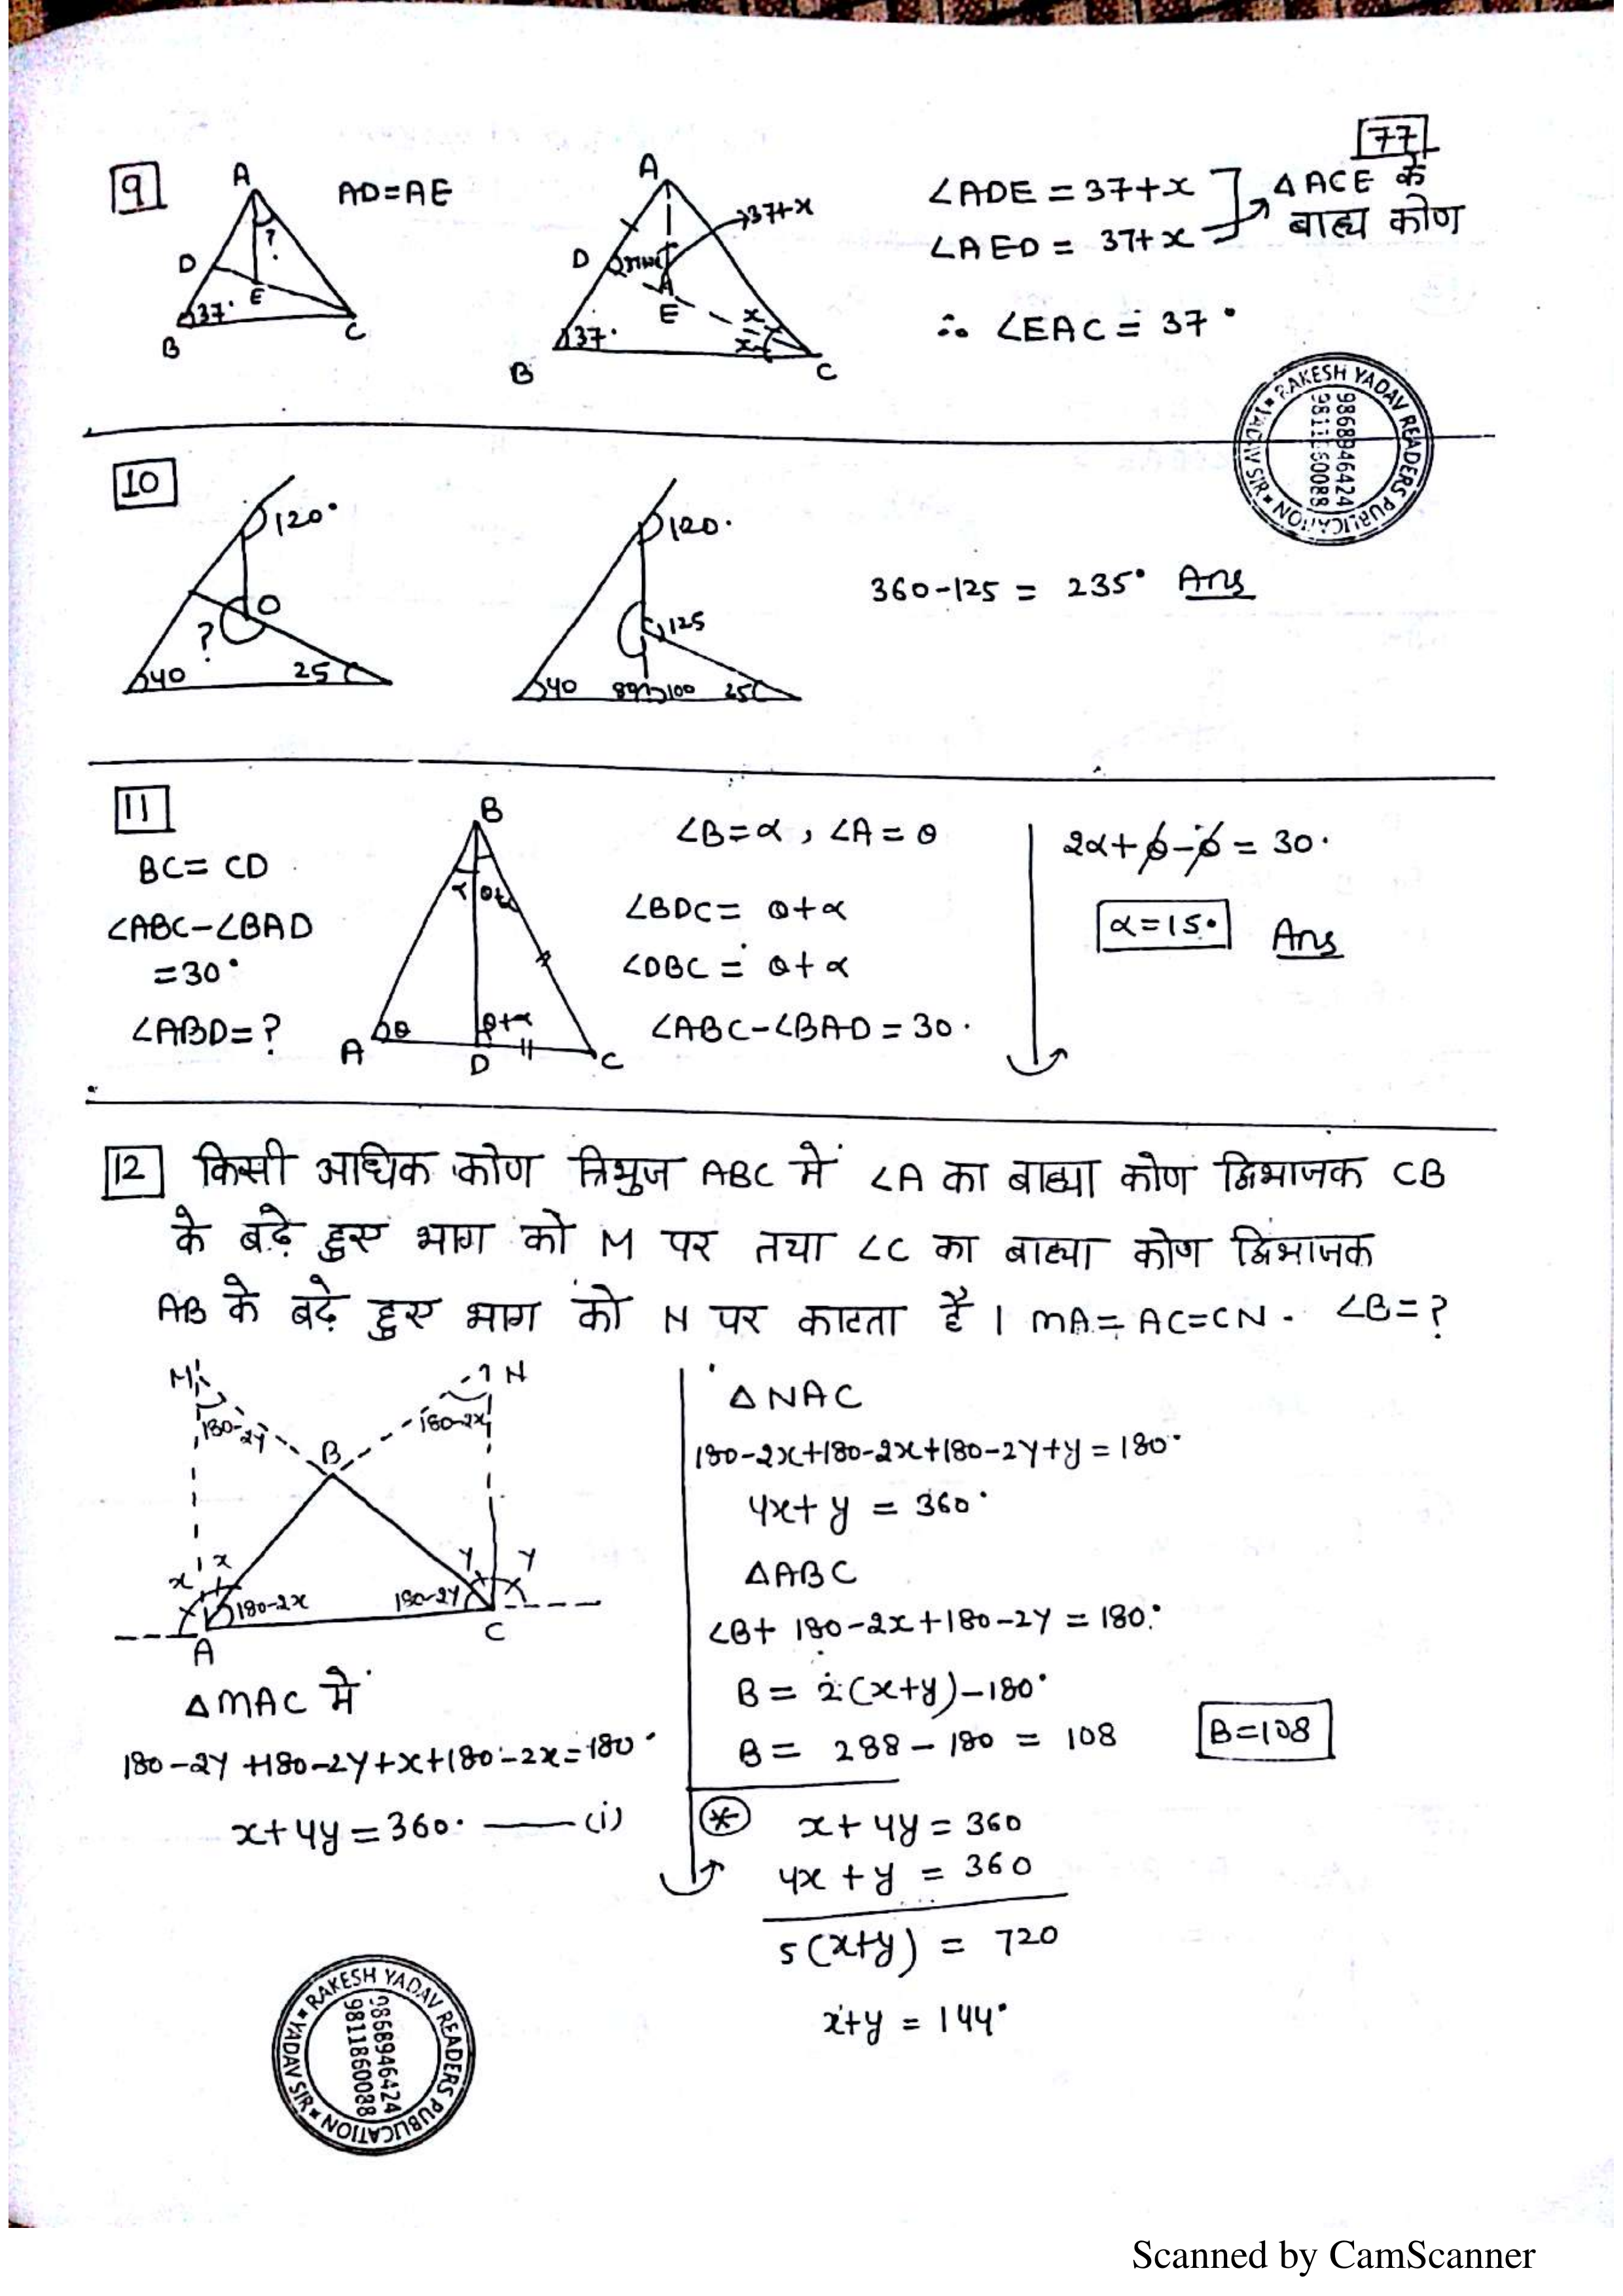 77
9
A
AD=AE
D
?
E
37°
B
C
A
37+x
D
E
x
x
37°
B
C
∠ADE = 37+x
∠AED = 37+x
△ACE के
बाह्य कोण
∴ ∠EAC = 37°
RAKESH YADAV READERS PUBLICATION
YADAV SIR
9868946424
10
120°
O
?
40
25
120°
125
40
100
25
360-125 = 235° Ans
11
BC= CD
∠ABC-∠BAD
=30°
∠ABD=?
B
α
θ+α
θ
θ+α
A
D
C
∠B=α, ∠A=θ
∠BDC= θ+α
∠DBC = θ+α
∠ABC-∠BAD=30°
2α+θ-θ = 30°
α=15° Ans
12 किसी अधिक कोण त्रिभुज ABC में ∠A का बाह्या कोण द्विभाजक CB
के बढ़े हुए भाग को M पर तथा ∠C का बाह्या कोण द्विभाजक
AB के बढ़े हुए भाग को N पर काटता है। MA=AC=CN. ∠B=?
M
N
180-2y
180-2x
B
x
x
y
y
180-2x
180-2y
A
C
△MAC में
180-2y+180-2y+x+180-2x=180°
x+4y=360° —— (i)
△NAC
180-2x+180-2x+180-2y+y=180°
4x+y = 360°
△ABC
∠B+ 180-2x+180-2y=180°
B= 2(x+y)-180°
B= 288-180 = 108
B=108
* x+4y=360
4x+y = 360
5(x+y) = 720
x+y = 144°
RAKESH YADAV READERS PUBLICATION
YADAV SIR
9868946424
9811860088
Scanned by CamScanner